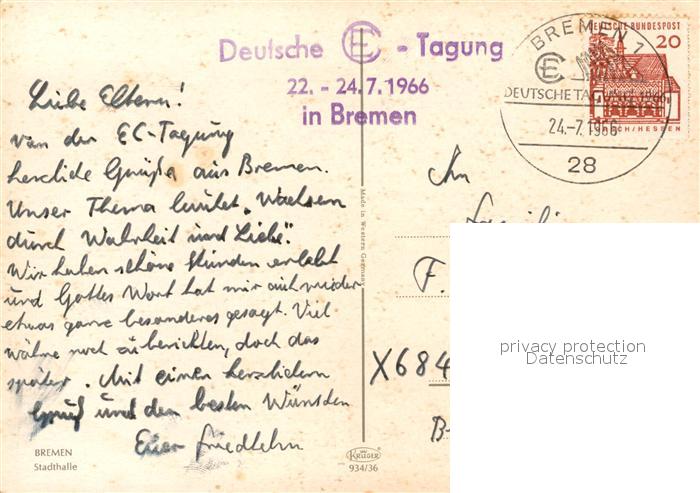 Deutsche EC - Tagung
22. - 24.7.1966
in Bremen
BREMEN 1
EC
DEUTSCHE TAGUNG
24.-7.1966
28
DEUTSCHE BUNDESPOST
20
LORSCH/HESSEN
Liebe Eltern!
Von der EC-Tagung
herzliche Grüße aus Bremen.
Unser Thema lautet „Wachsen
durch Wahrheit und Liebe".
Wir haben schöne Stunden erlebt
und Gottes Wort hat mir auch wieder
etwas ganz besonderes gesagt. Viel
wäre noch zu berichten, doch das
später. Mit einem herzlichen
Gruß und den besten Wünschen
Euer Friedhelm
Made in Western Germany
An
Familie
F.
X684
B
privacy protection
Datenschutz
BREMEN
Stadthalle
KRÜGER
934/36